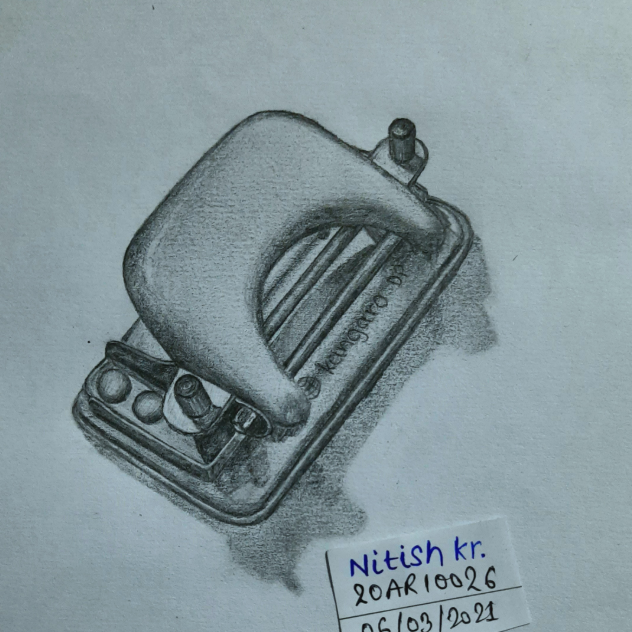 kangaro - DP
Nitish kr.
20AR10026
06/03/2021